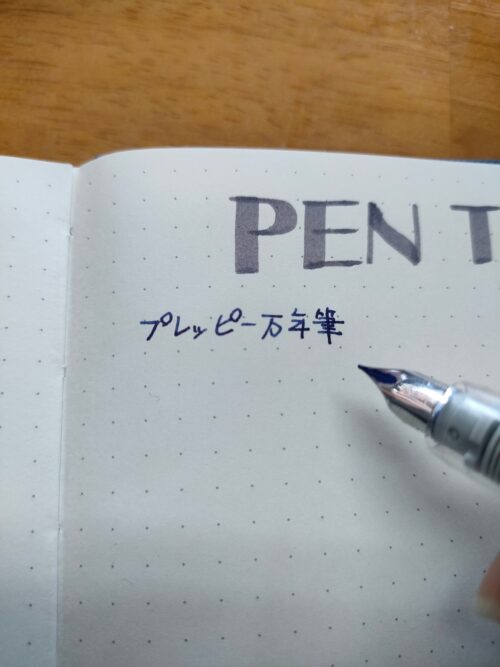 PEN T
プレッピー万年筆